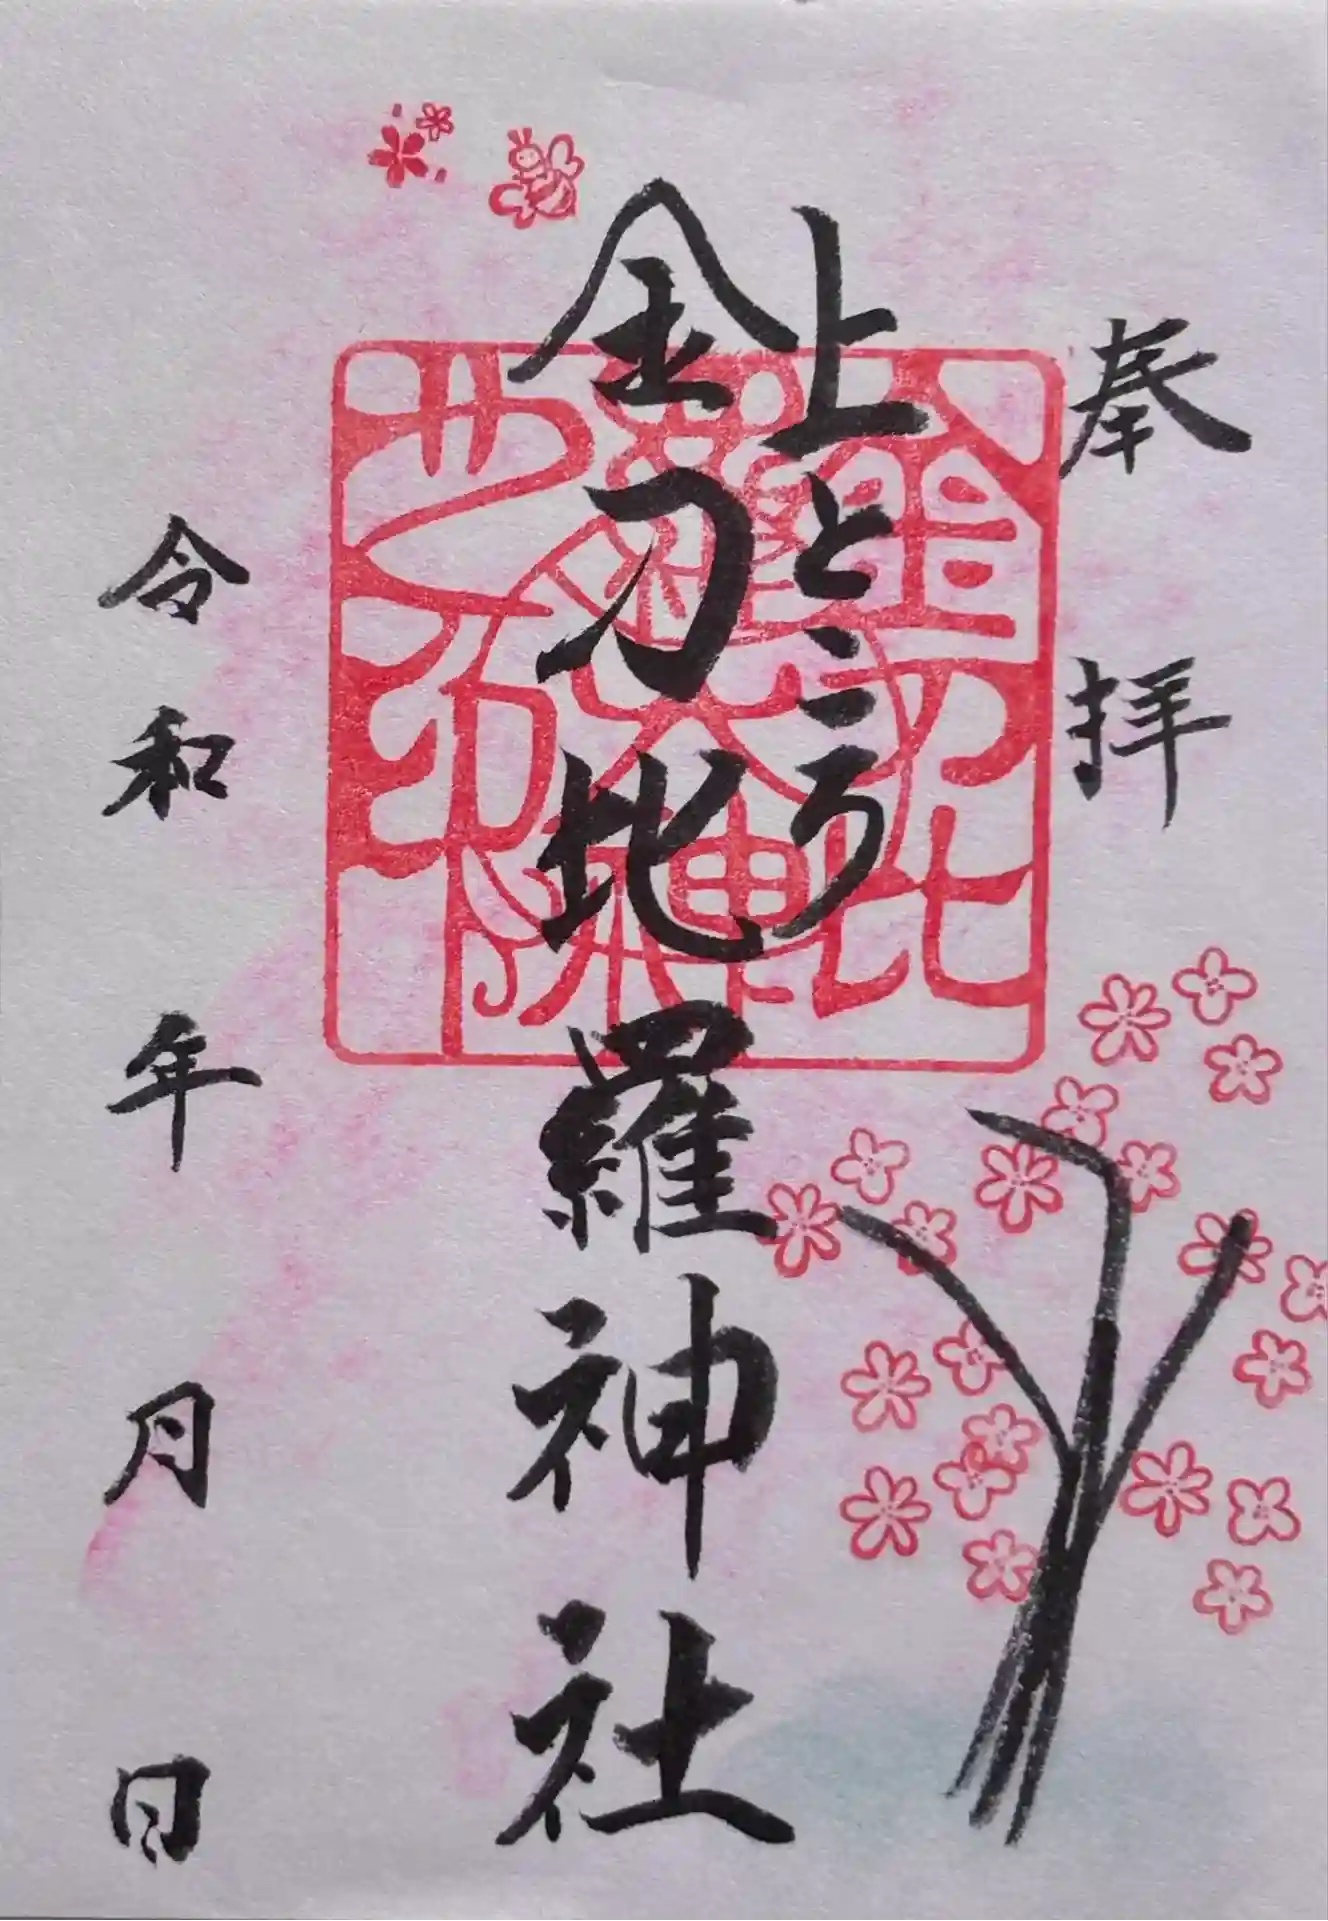 奉拝
上ところ
金刀比羅神社
令和 年 月 日
金刀比
羅大神